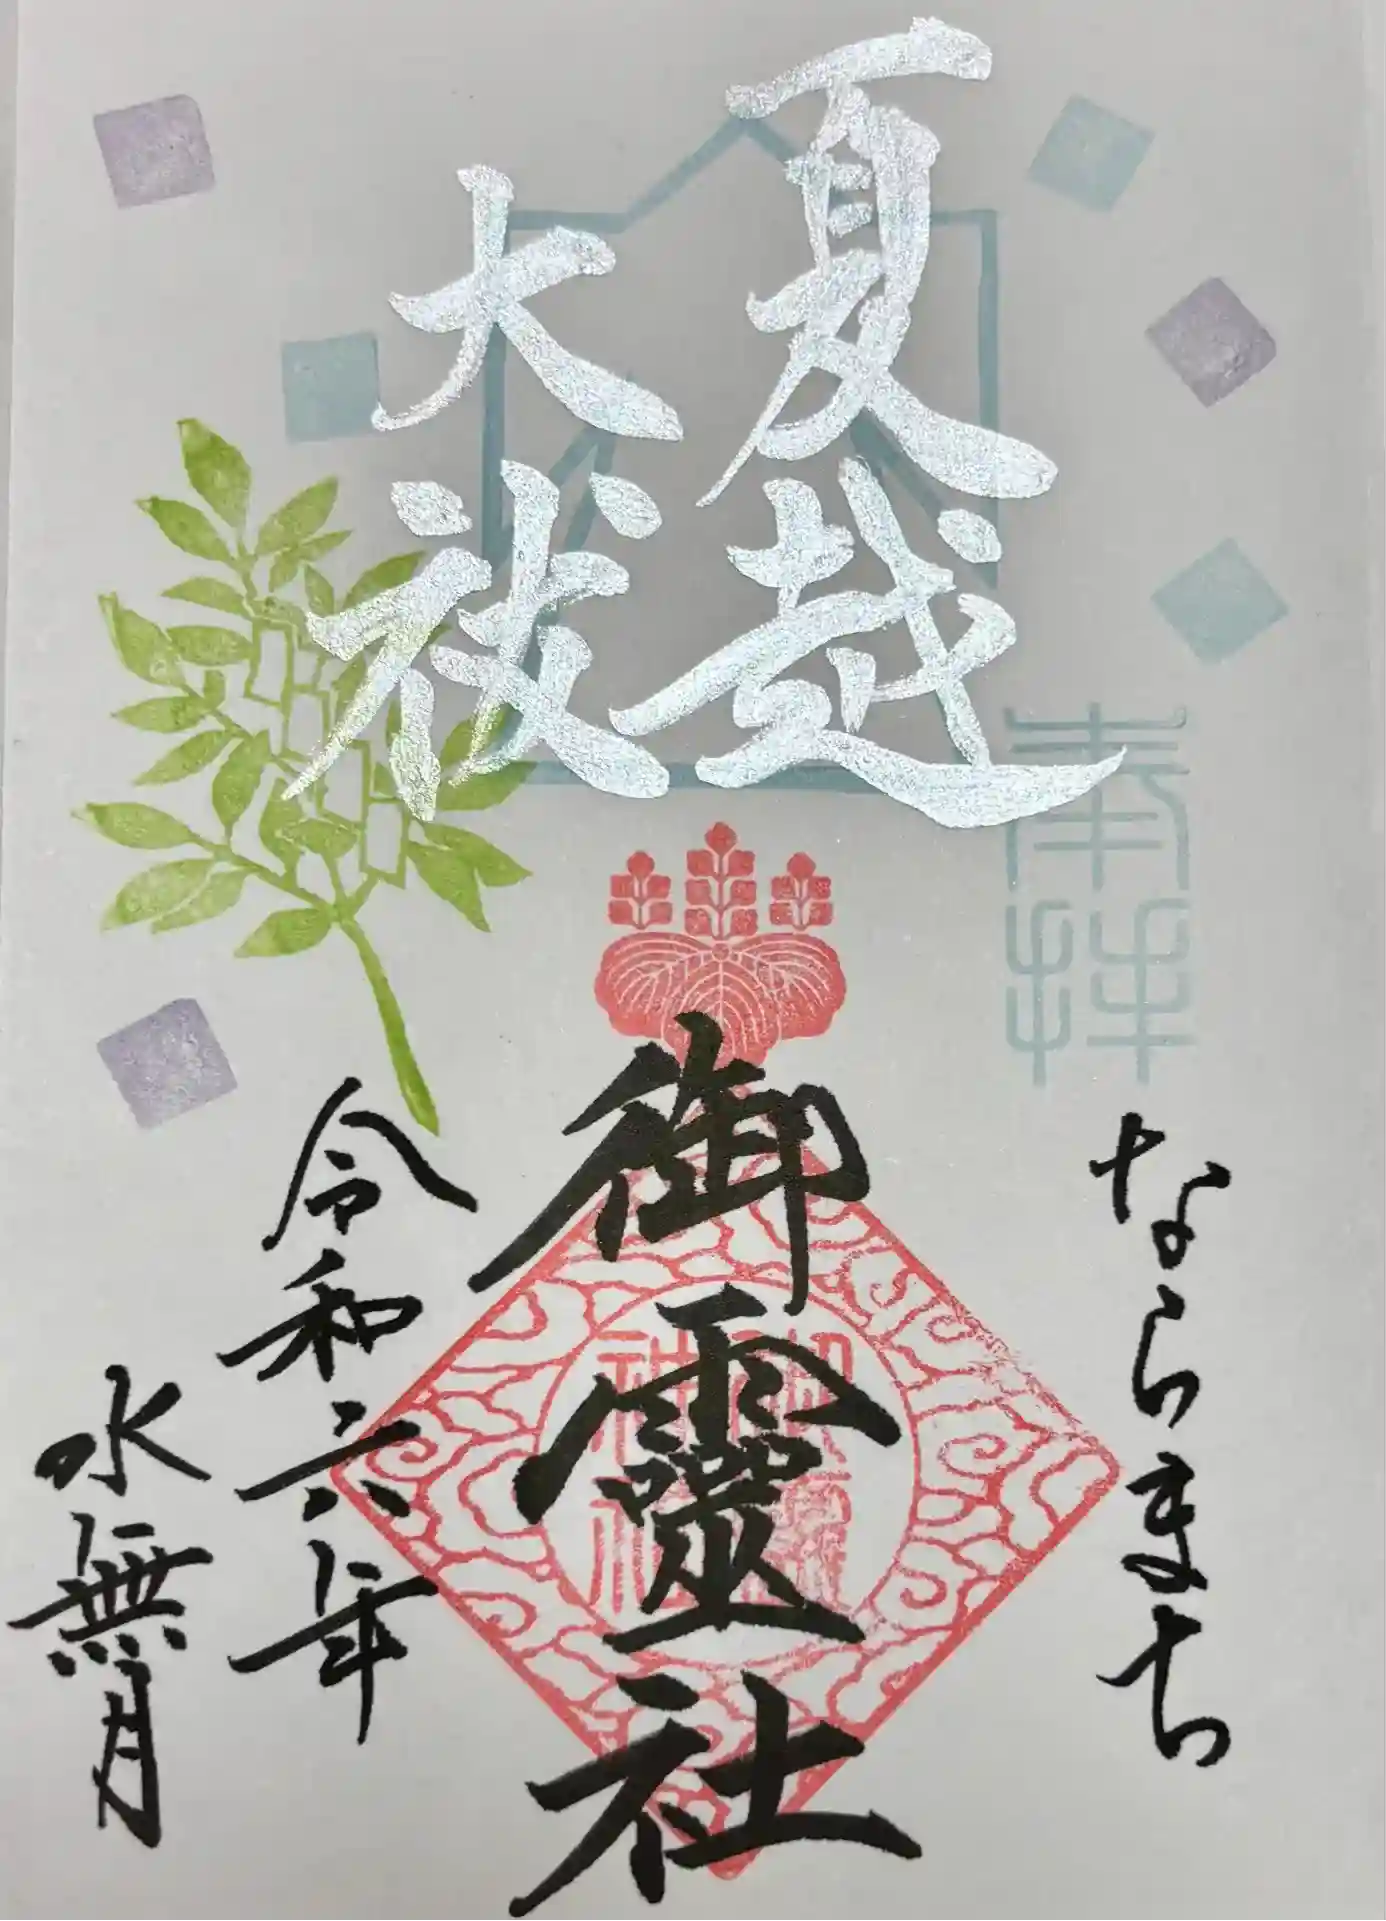 夏越
大祓
奉拝
ならまち
御靈社
令和六年
水無月